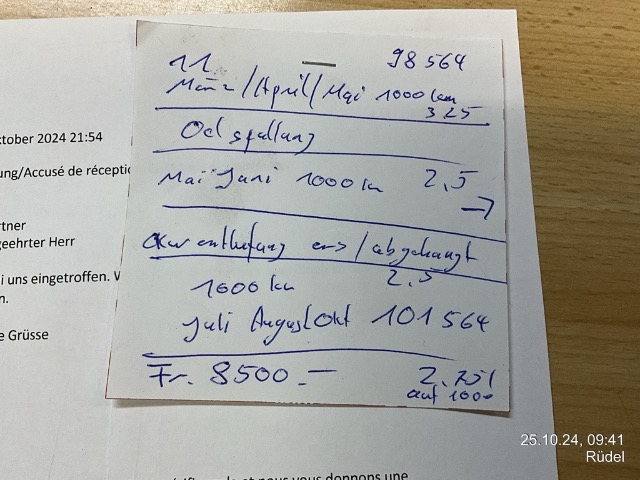 ktober 2024 21:54
ung/Accusé de réceptio
rtner
geehrter Herr
i uns eingetroffen. V
n.
e Grüsse
11 98 564
März/April/Mai 1000 km
3.25
Öl
Mai Juni 1000 km 2,5
→
/abgehängt
2.5
1000 km
Juli August Okt 101 564
Fr. 8500.— 2.75l
auf 1000
25.10.24, 09:41
Rüdel
et nous vous donnons une